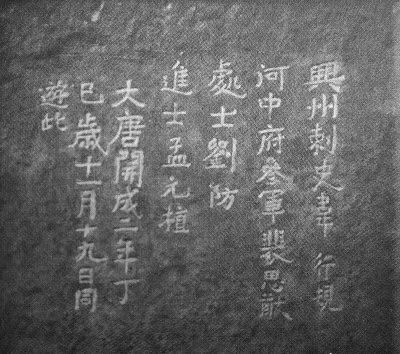 興州刺史韋行規
河中府參軍裴思猷
處士劉防
進士孟元植
大唐開成二年丁
巳歲十一月十九日同
遊此